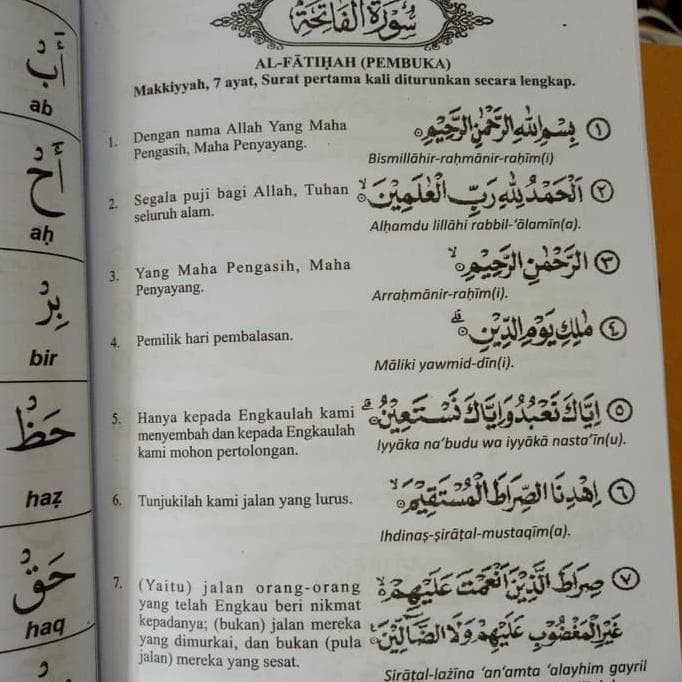 سورة الفاتحة
AL-FĀTIḤAH (PEMBUKA)
Makkiyyah, 7 ayat, Surat pertama kali diturunkan secara lengkap.
1. Dengan nama Allah Yang Maha
Pengasih, Maha Penyayang.
بِسْمِ اللّٰهِ الرَّحْمٰنِ الرَّحِيْمِ ١
Bismillāhir-raḥmānir-raḥīm(i)
2. Segala puji bagi Allah, Tuhan
seluruh alam.
اَلْحَمْدُ لِلّٰهِ رَبِّ الْعٰلَمِيْنَۙ ٢
Alḥamdu lillāhi rabbil-‘ālamīn(a).
3. Yang Maha Pengasih, Maha
Penyayang.
الرَّحْمٰنِ الرَّحِيْمِۙ ٣
Arraḥmānir-raḥīm(i).
4. Pemilik hari pembalasan.
مٰلِكِ يَوْمِ الدِّيْنِۗ ٤
Māliki yawmid-dīn(i).
5. Hanya kepada Engkaulah kami
menyembah dan kepada Engkaulah
kami mohon pertolongan.
اِيَّاكَ نَعْبُدُ وَاِيَّاكَ نَسْتَعِيْنُۗ ٥
Iyyāka na‘budu wa iyyākā nasta‘īn(u).
6. Tunjukilah kami jalan yang lurus.
اِهْدِنَا الصِّرَاطَ الْمُسْتَقِيْمَۙ ٦
Ihdinaṣ-ṣirāṭal-mustaqīm(a).
7. (Yaitu) jalan orang-orang
yang telah Engkau beri nikmat
kepadanya; (bukan) jalan mereka
yang dimurkai, dan bukan (pula
jalan) mereka yang sesat.
صِرَاطَ الَّذِيْنَ اَنْعَمْتَ عَلَيْهِمْ ەۙ ٧
غَيْرِ الْمَغْضُوْبِ عَلَيْهِمْ وَلَا الضَّاۤلِّيْنَ
Ṣirāṭal-lażīna ‘an‘amta ‘alayhim gayril
أَبْ
ab
أَحْ
aḥ
بِرْ
bir
حَظْ
haẓ
حَقْ
haq